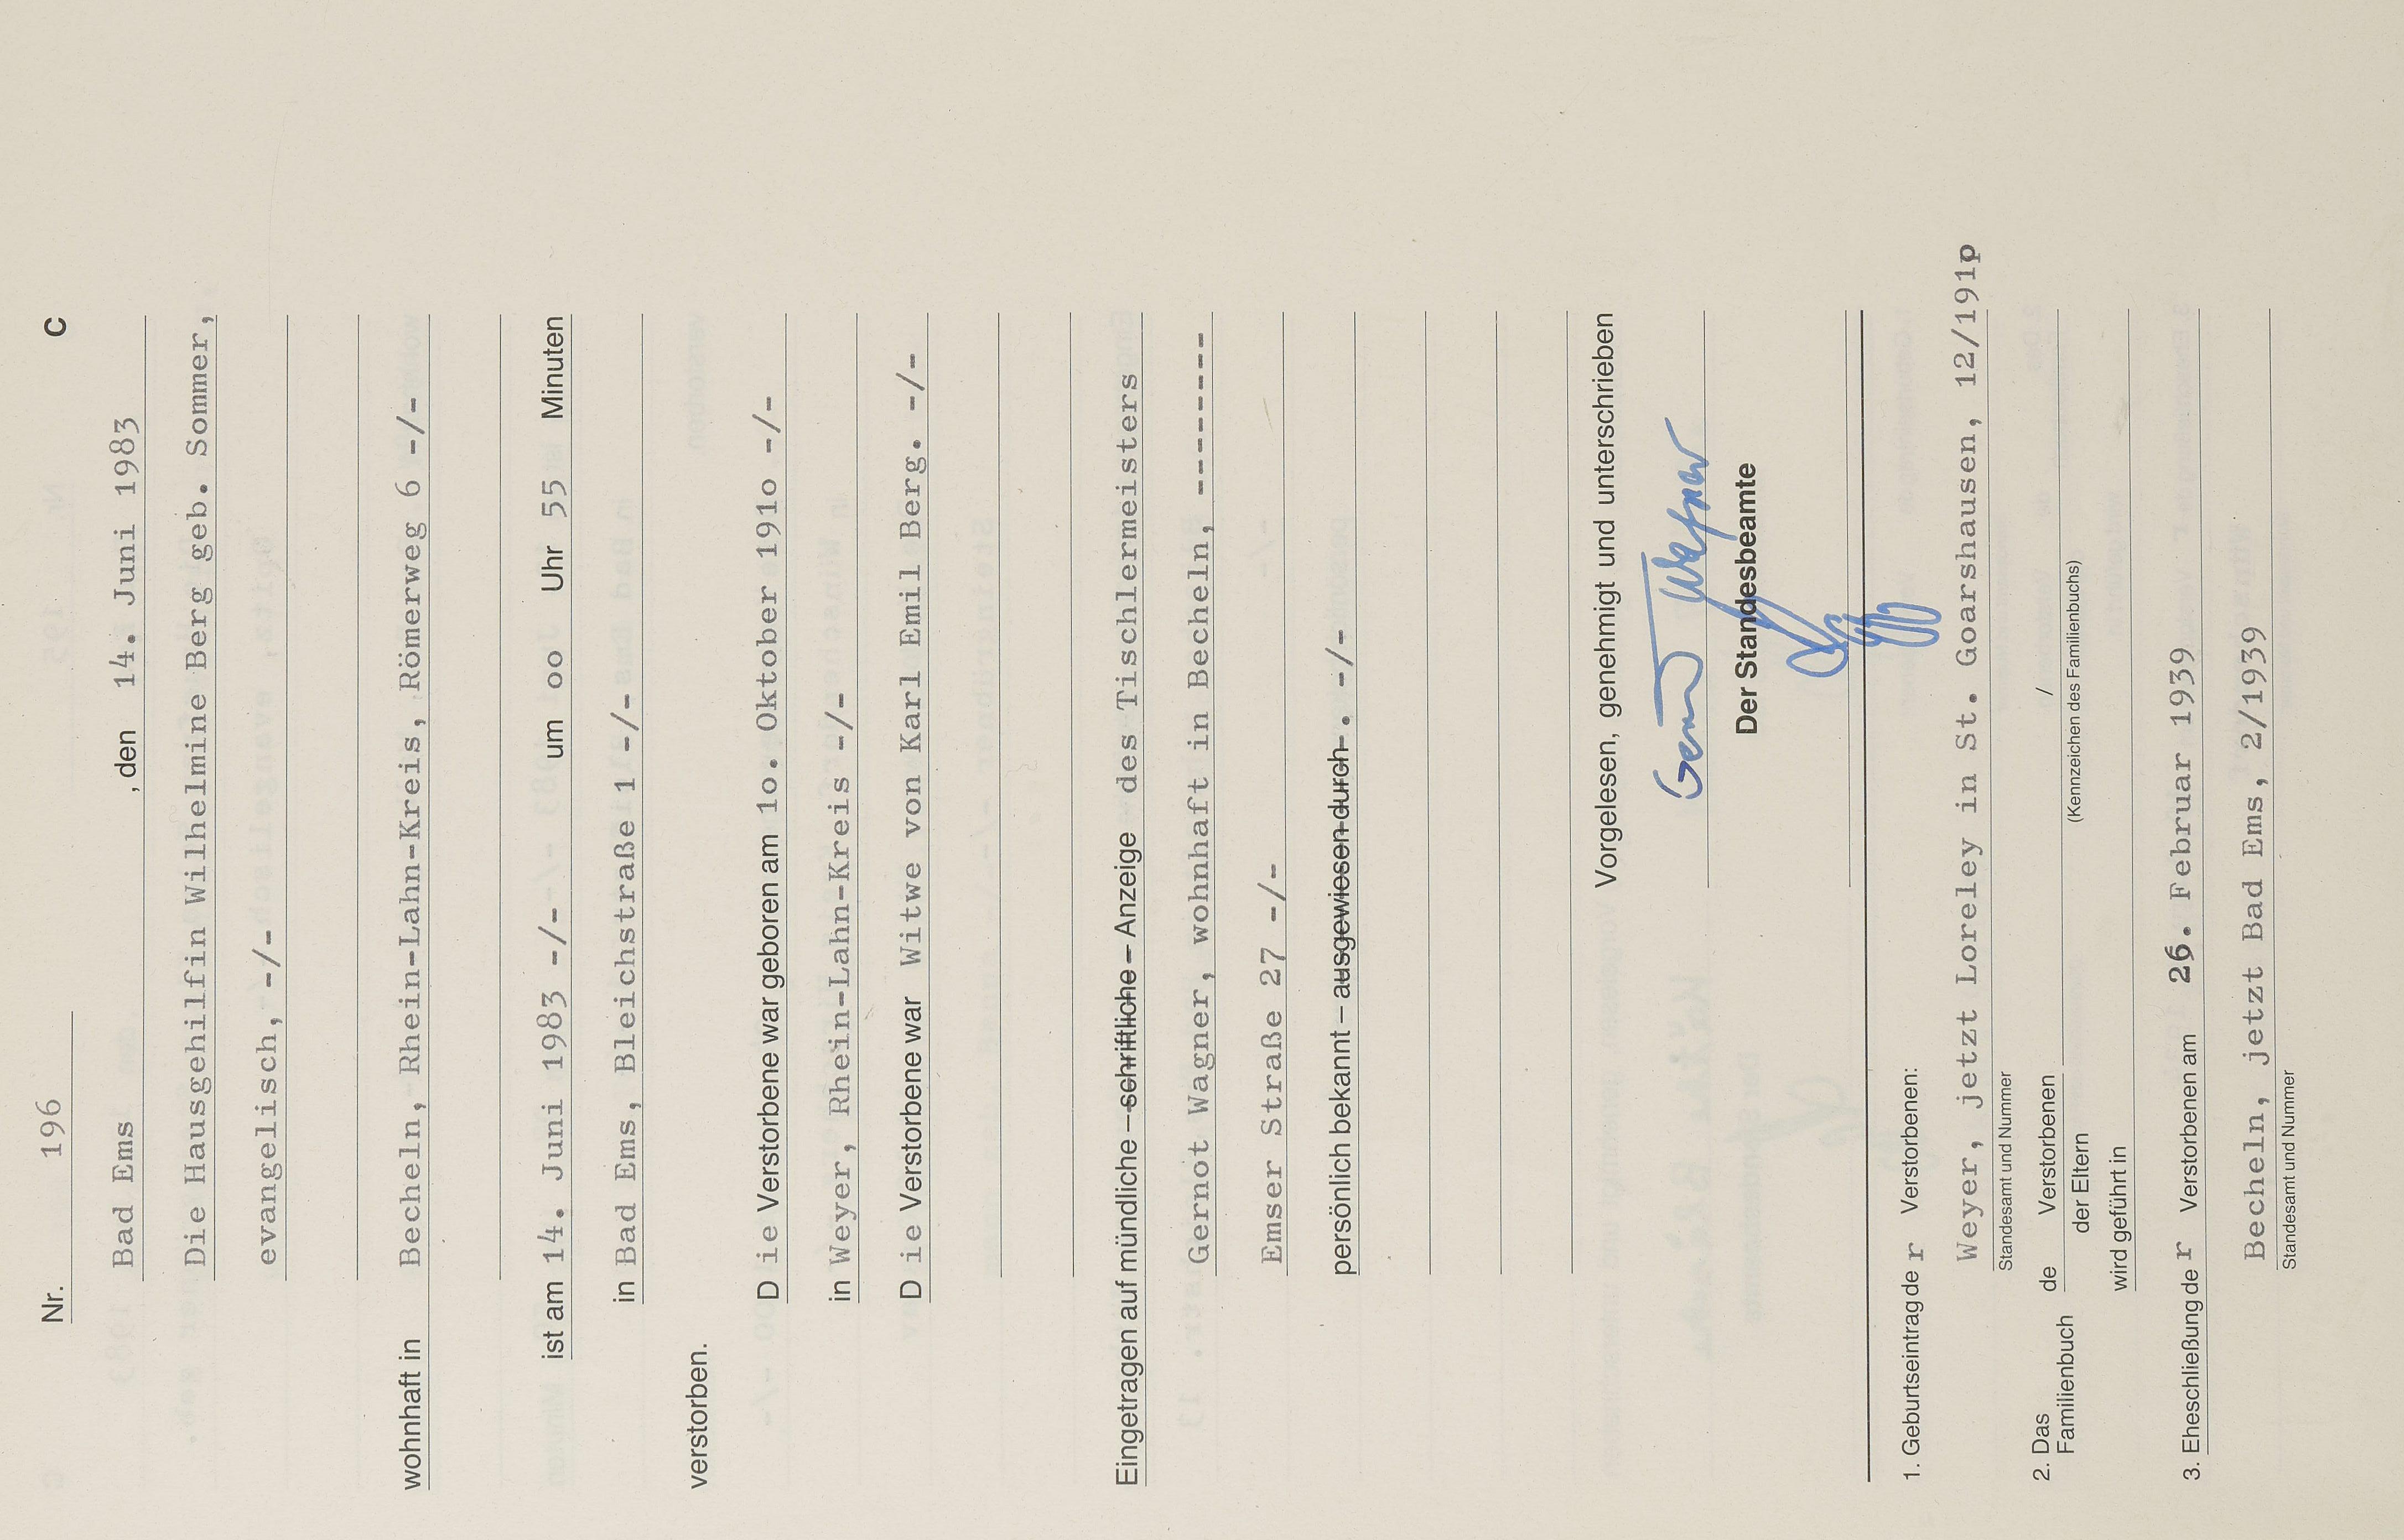 Nr. 196 C
Bad Ems , den 14. Juni 1983
Die Hausgehilfin Wilhelmine Berg geb. Sommer,
evangelisch, -/-
wohnhaft in Becheln, Rhein-Lahn-Kreis, Römerweg 6 -/-
ist am 14. Juni 1983 -/- um oo Uhr 55 Minuten
in Bad Ems, Bleichstraße 1 -/-
verstorben.
Die Verstorbene war geboren am 1o. Oktober 191o -/-
in Weyer, Rhein-Lahn-Kreis -/-
Die Verstorbene war Witwe von Karl Emil Berg. -/-
Eingetragen auf mündliche – schriftliche – Anzeige des Tischlermeisters
Gernot Wagner, wohnhaft in Becheln, --------
Emser Straße 27 -/-
persönlich bekannt – ausgewiesen durch . -/-
Vorgelesen, genehmigt und unterschrieben
Gernot Wagner
Der Standesbeamte
1. Geburtseintrag der Verstorbenen:
Weyer, jetzt Loreley in St. Goarshausen, 12/191p
Standesamt und Nummer
2. Das Familienbuch de Verstorbenen /
der Eltern (Kennzeichen des Familienbuchs)
wird geführt in
3. Eheschließung der Verstorbenen am 26. Februar 1939
Becheln, jetzt Bad Ems, 2/1939
Standesamt und Nummer